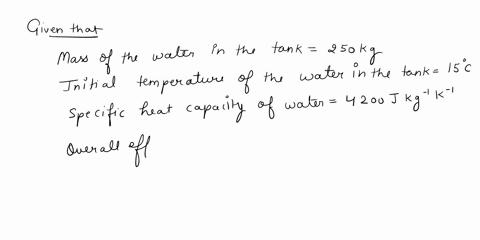 Given that
Mass of the water in the tank = 250 kg
Initial temperature of the water in the tank = 15°C
Specific heat capacity of water = 4200 J kg⁻¹ K⁻¹
Overall eff